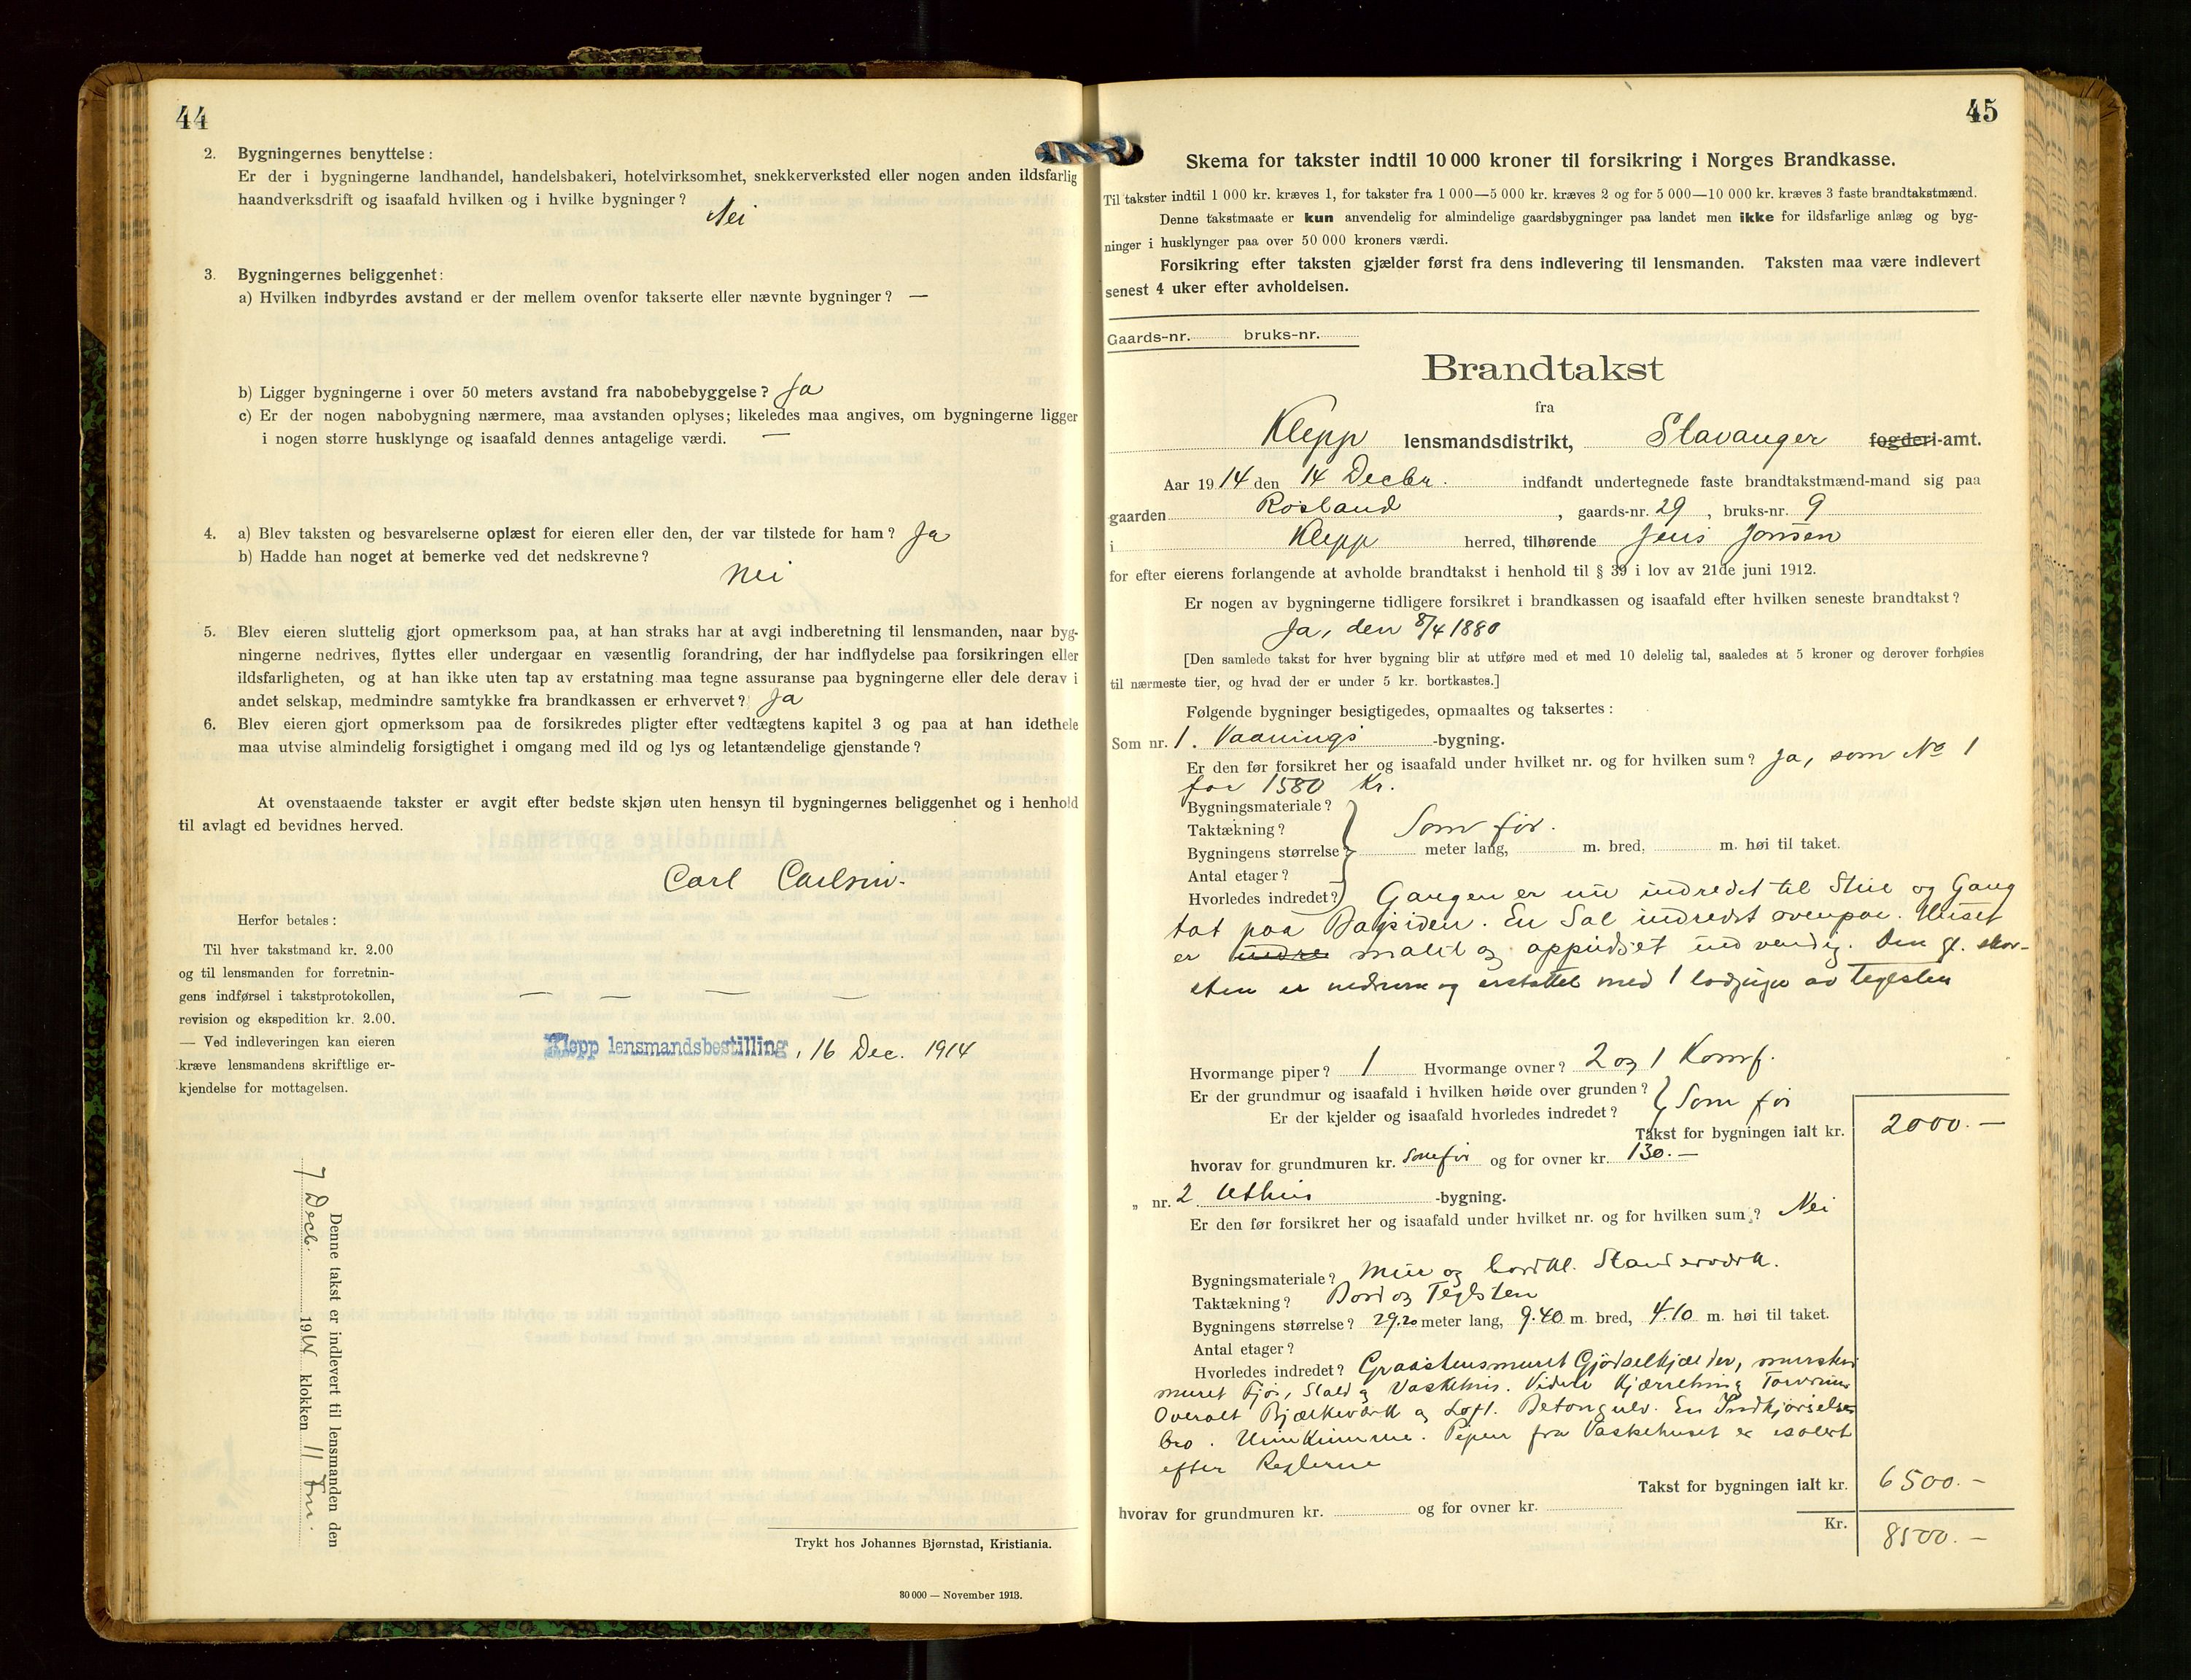 44
2. Bygningernes benyttelse:
Er der i bygningerne landhandel, handelsbakeri, hotelvirksomhet, snekkerverksted eller nogen anden ildsfarlig
haandverksdrift og isaafald hvilken og i hvilke bygninger?
Nei
3. Bygningernes beliggenhet:
a) Hvilken indbyrdes avstand er der mellem ovenfor takserte eller nævnte bygninger? —
b) Ligger bygningerne i over 50 meters avstand fra nabobebyggelse? Ja
c) Er der nogen nabobygning nærmere, maa avstanden oplyses; likeledes maa angives, om bygningerne ligger
i nogen større husklynge og isaafald dennes antagelige værdi. —
4. a) Blev taksten og besvarelserne oplæst for eieren eller den, der var tilstede for ham? Ja
b) Hadde han noget at bemerke ved det nedskrevne?
Nei
5. Blev eieren sluttelig gjort opmerksom paa, at han straks har at avgi indberetning til lensmanden, naar byg-
ningerne nedrives, flyttes eller undergaar en væsentlig forandring, der har indflydelse paa forsikringen eller
ildsfarligheten, og at han ikke uten tap av erstatning maa tegne assuranse paa bygningerne eller dele derav i
andet selskap, medmindre samtykke fra brandkassen er erhvervet? Ja
6. Blev eieren gjort opmerksom paa de forsikredes pligter efter vedtægtens kapitel 3 og paa at han idethele
maa utvise almindelig forsigtighet i omgang med ild og lys og letantændelige gjenstande?
At ovenstaaende takster er avgit efter bedste skjøn uten hensyn til bygningernes beliggenhet og i henhold
til avlagt ed bevidnes herved.
Carl Carlsen.
Herfor betales:
Til hver takstmand kr. 2.00
og til lensmanden for forretnin-
gens indførsel i takstprotokollen,
revision og ekspedition kr. 2.00.
— Ved indleveringen kan eieren
kræve lensmandens skriftlige er-
kjendelse for mottagelsen.
— — — —
Klepp lensmandsbestilling, 16 Dec. 1914
Denne takst er indlevert til lensmanden den
7 Decb. 1914 klokken 11 Fm.
Trykt hos Johannes Bjørnstad, Kristiania.
30 000 — November 1913.
45
Skema for takster indtil 10 000 kroner til forsikring i Norges Brandkasse.
Til takster indtil 1 000 kr. kræves 1, for takster fra 1 000—5 000 kr. kræves 2 og for 5 000—10 000 kr. kræves 3 faste brandtakstmænd.
Denne takstmaate er kun anvendelig for almindelige gaardsbygninger paa landet men ikke for ildsfarlige anlæg og byg-
ninger i husklynger paa over 50 000 kroners værdi.
Forsikring efter taksten gjælder først fra dens indlevering til lensmanden. Taksten maa være indlevert
senest 4 uker efter avholdelsen.
Gaards-nr. bruks-nr.
Brandtakst
fra
Klepp lensmandsdistrikt, Stavanger fogderi-amt.
Aar 1914 den 14 Decbr. indfandt undertegnede faste brandtakstmænd-mand sig paa
gaarden Rosland, gaards-nr. 29, bruks-nr. 9
i Klepp herred, tilhørende Jens Jonsen
for efter eierens forlangende at avholde brandtakst i henhold til § 39 i lov av 21de juni 1912.
Er nogen av bygningerne tidligere forsikret i brandkassen og isaafald efter hvilken seneste brandtakst?
Ja, den 8/4 1880
[Den samlede takst for hver bygning blir at utføre med et med 10 delelig tal, saaledes at 5 kroner og derover forhøies
til nærmeste tier, og hvad der er under 5 kr. bortkastes.]
Følgende bygninger besigtigedes, opmaaltes og taksertes:
Som nr. 1. Vaanings -bygning.
Er den før forsikret her og isaafald under hvilket nr. og for hvilken sum? Ja, som No 1
for 1580 Kr.
Bygningsmateriale?
Taktækning? Som før.
Bygningens størrelse? meter lang, m. bred, m. høi til taket.
Antal etager?
Hvorledes indredet? Gangen er nu indredet til Stue og Gang
tat paa Bagsiden. En Sal indredet ovenpaa. Huset
er indre malet og oppudset indvendig. Den gl. skor-
sten er nedreven og erstattet med 1 lodpipe av Teglsten
Hvormange piper? 1 Hvormange ovner? 2 og 1 Komf.
Er der grundmur og isaafald i hvilken høide over grunden?
Er der kjelder og isaafald hvorledes indredet? Som før
Takst for bygningen ialt kr. 2000.—
hvorav for grundmuren kr. Som før og for ovner kr. 130.—
„ nr. 2 Uthus -bygning.
Er den før forsikret her og isaafald under hvilket nr. og for hvilken sum? Nei
Bygningsmateriale? Mur og bordkl. Standerværk.
Taktækning? Bord og Teglsten
Bygningens størrelse? 29.20 meter lang, 9.40 m. bred, 4.10 m. høi til taket.
Antal etager?
Hvorledes indredet? Graastensmuret Gjødselkjælder, mursten
muret Fjøs, Stald og Vaskehus. Videre Kjærrehus og Torvrum
Overalt Bjælkeværk og Loft. Betongulv. En Indkjørsels
bro. Urinkumme. Pipen fra Vaskehuset er isolert
efter Reglerne
Takst for bygningen ialt kr. 6500.-
hvorav for grundmuren kr. og for ovner kr.
Kr. 8500.-